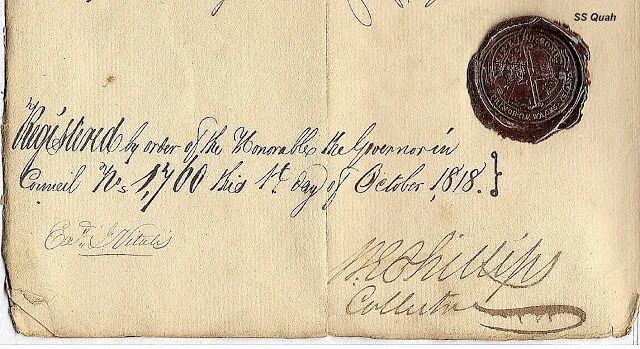 SS Quah
Registered by order of the Honorable the Governor in
Council No. 1,760 this 1st. day of October 1,818.
Exd. J Vitalis
W E Phillips
Collector